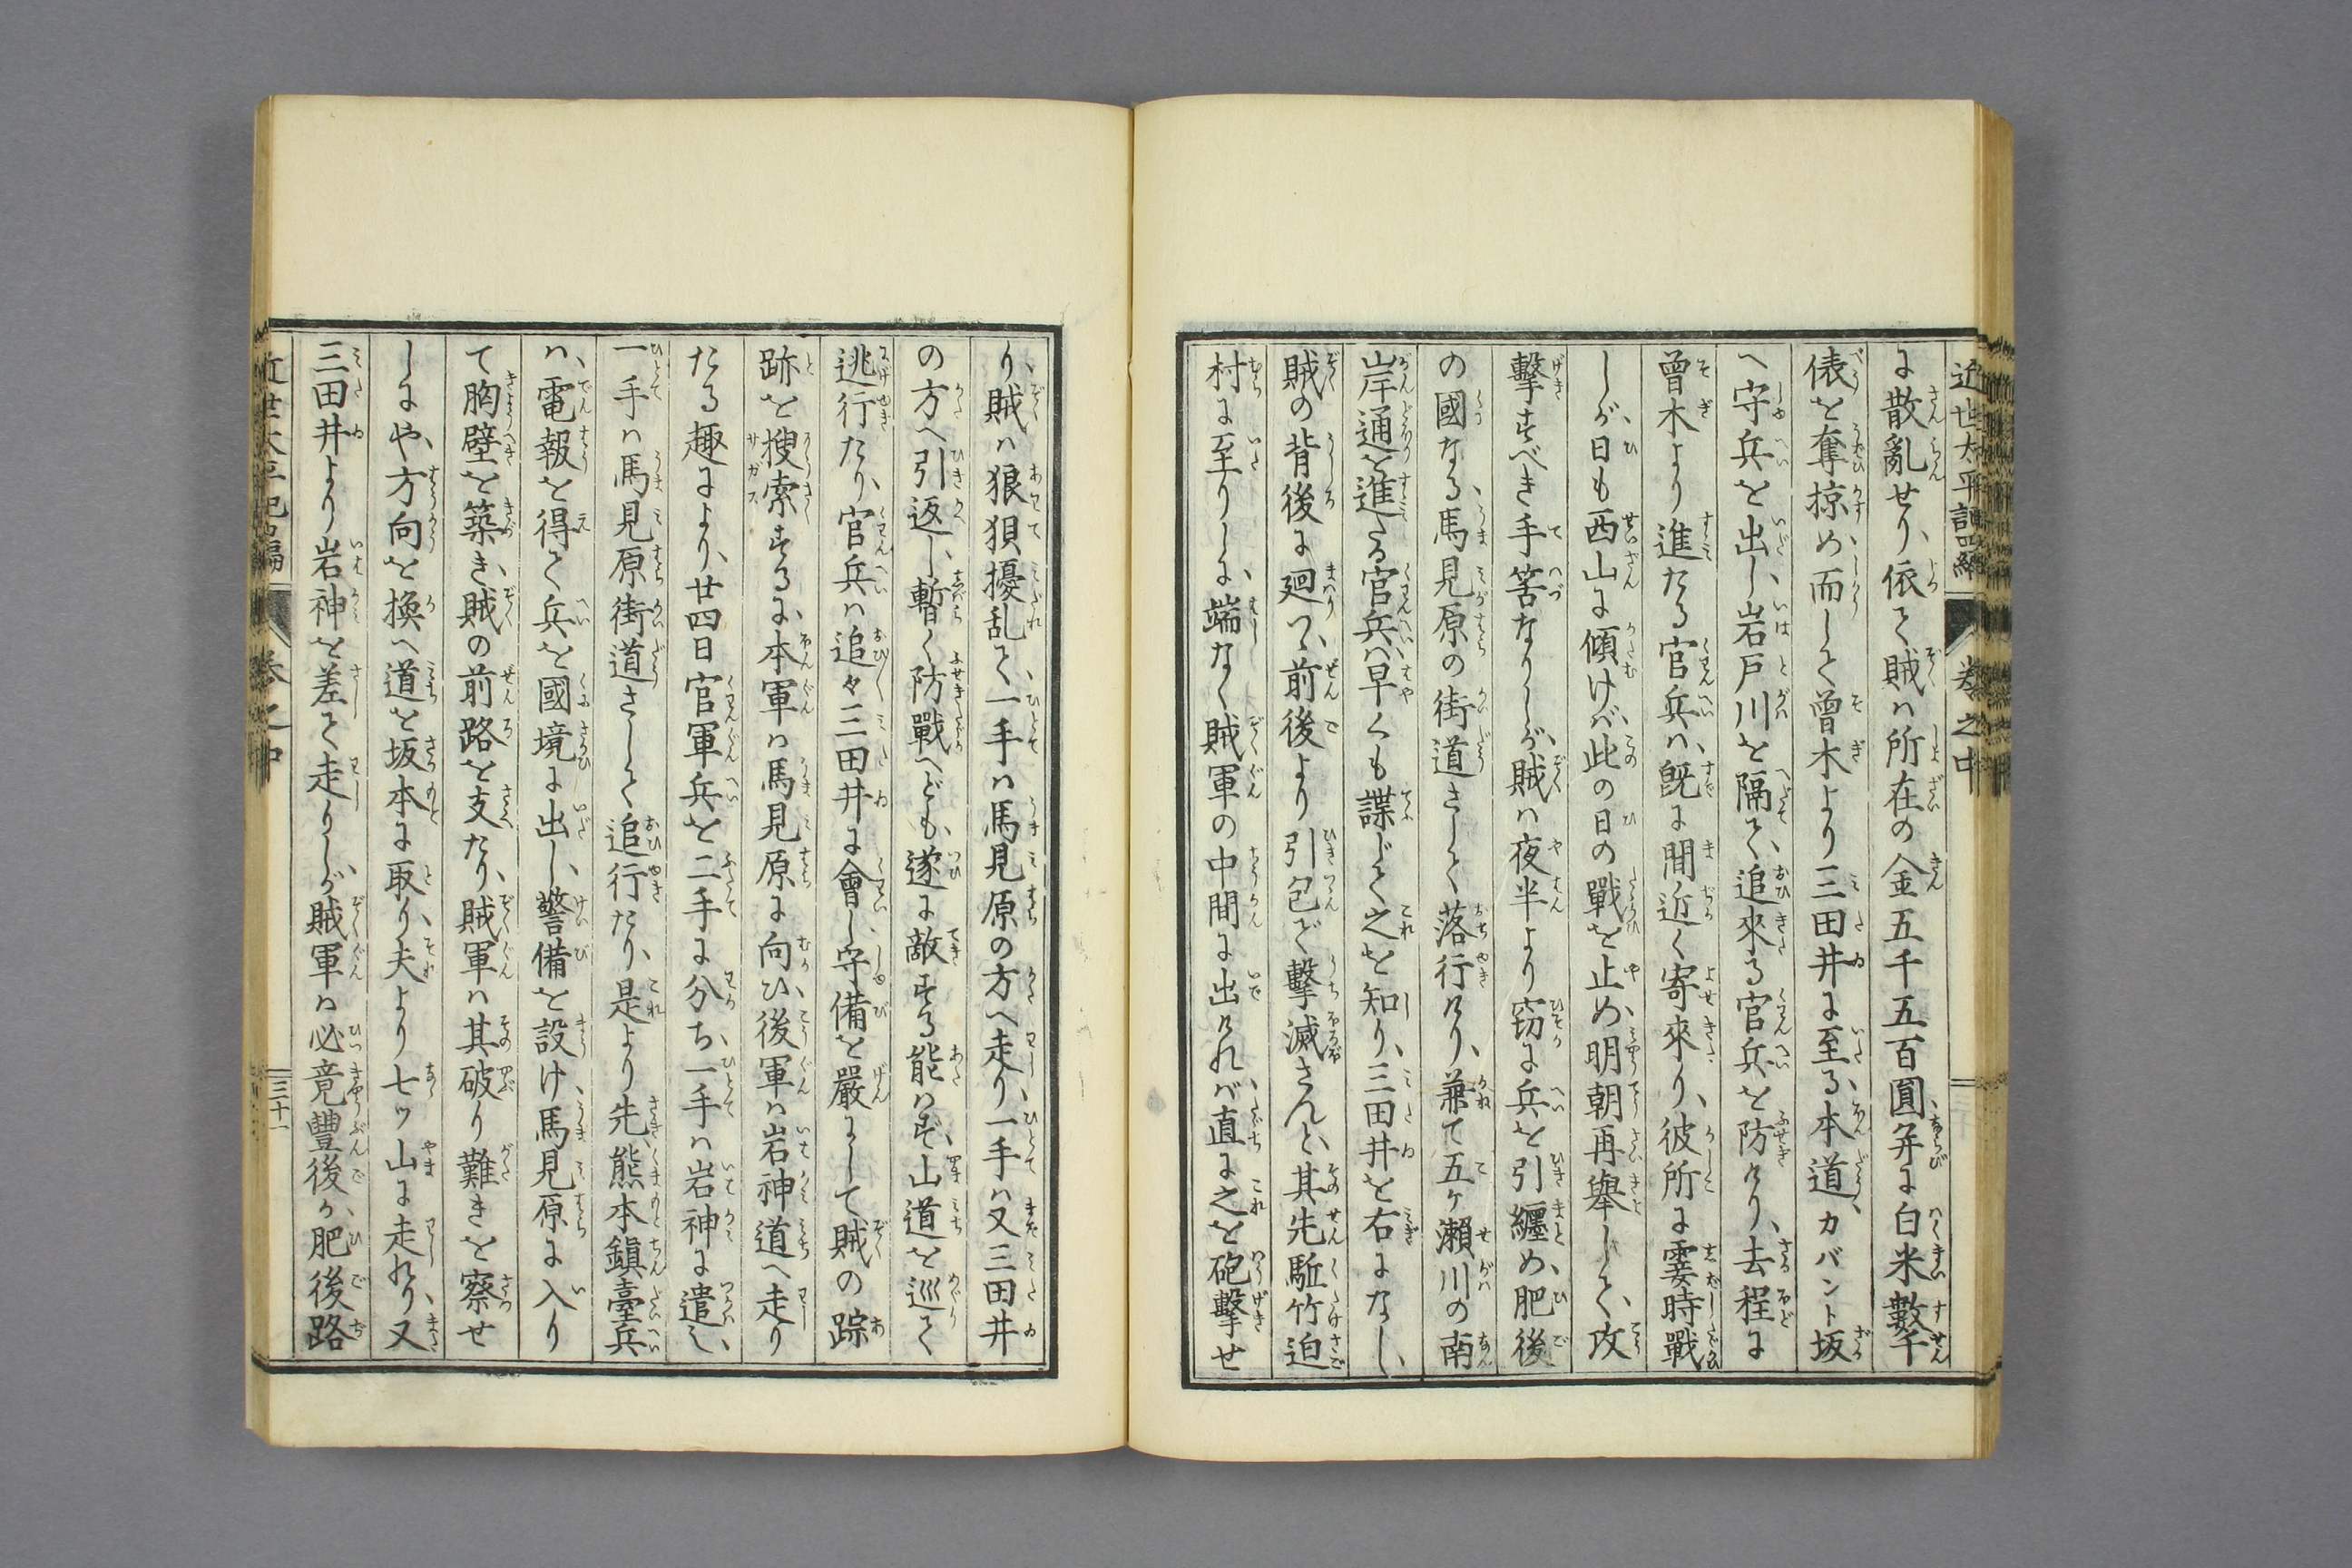 近世太平記四編 卷之中
に散亂せり、依て賊ハ所在の金五千五百圓、并に白米數千
俵を奪掠め、而して曾木より三田井に至る、本道、カバント坂
へ守兵を出し、岩戸川を隔て、追來る官兵を防げり、去程に
曾木より進たる官兵ハ、既に間近く寄來り、彼所に霎時戰
しが、日も西山に傾けバ、此の日の戰を止め、明朝再擧して、攻
擊すべき手筈なりしが、賊ハ夜半より窃に兵を引纒め、肥後
の國なる、馬見原の街道さして落行けり、兼て五ヶ瀬川の南
岸通を進たる官兵ハ、早くも諜じて之を知り、三田井を右になし、
賊の背後に廻りつ、前後より引包で擊滅さんと、其先駈竹迫
村に至りしに、端なく賊軍の中間に出けれバ、直に之を砲擊せ
り、賊ハ狼狽擾乱て、一手ハ馬見原の方へ走り、一手ハ又三田井
の方へ引返し、暫く防戰へども、遂に敵する能はず、山道を巡て
逃行たり、官兵ハ追々三田井に會し、守備を嚴にして賊の踪
跡を搜索するに、本軍ハ馬見原に向ひ、後軍ハ岩神道へ走り
たる趣により、廿四日官軍兵を二手に分ち、一手ハ岩神に遣し、
一手ハ馬見原街道さして追行たり、是より先熊本鎭臺兵
ハ、電報を得て兵を國境に出し、警備を設け、馬見原に入り
て胸壁を築き、賊の前路を支たり、賊軍ハ其破り難きを察せ
しにや、方向を換へ道を坂本に取り、夫より七ツ山に走れり、又
三田井より岩神を差て走りしが、賊軍ハ必竟豐後か、肥後路
近世太平記四編 卷之中 三十一